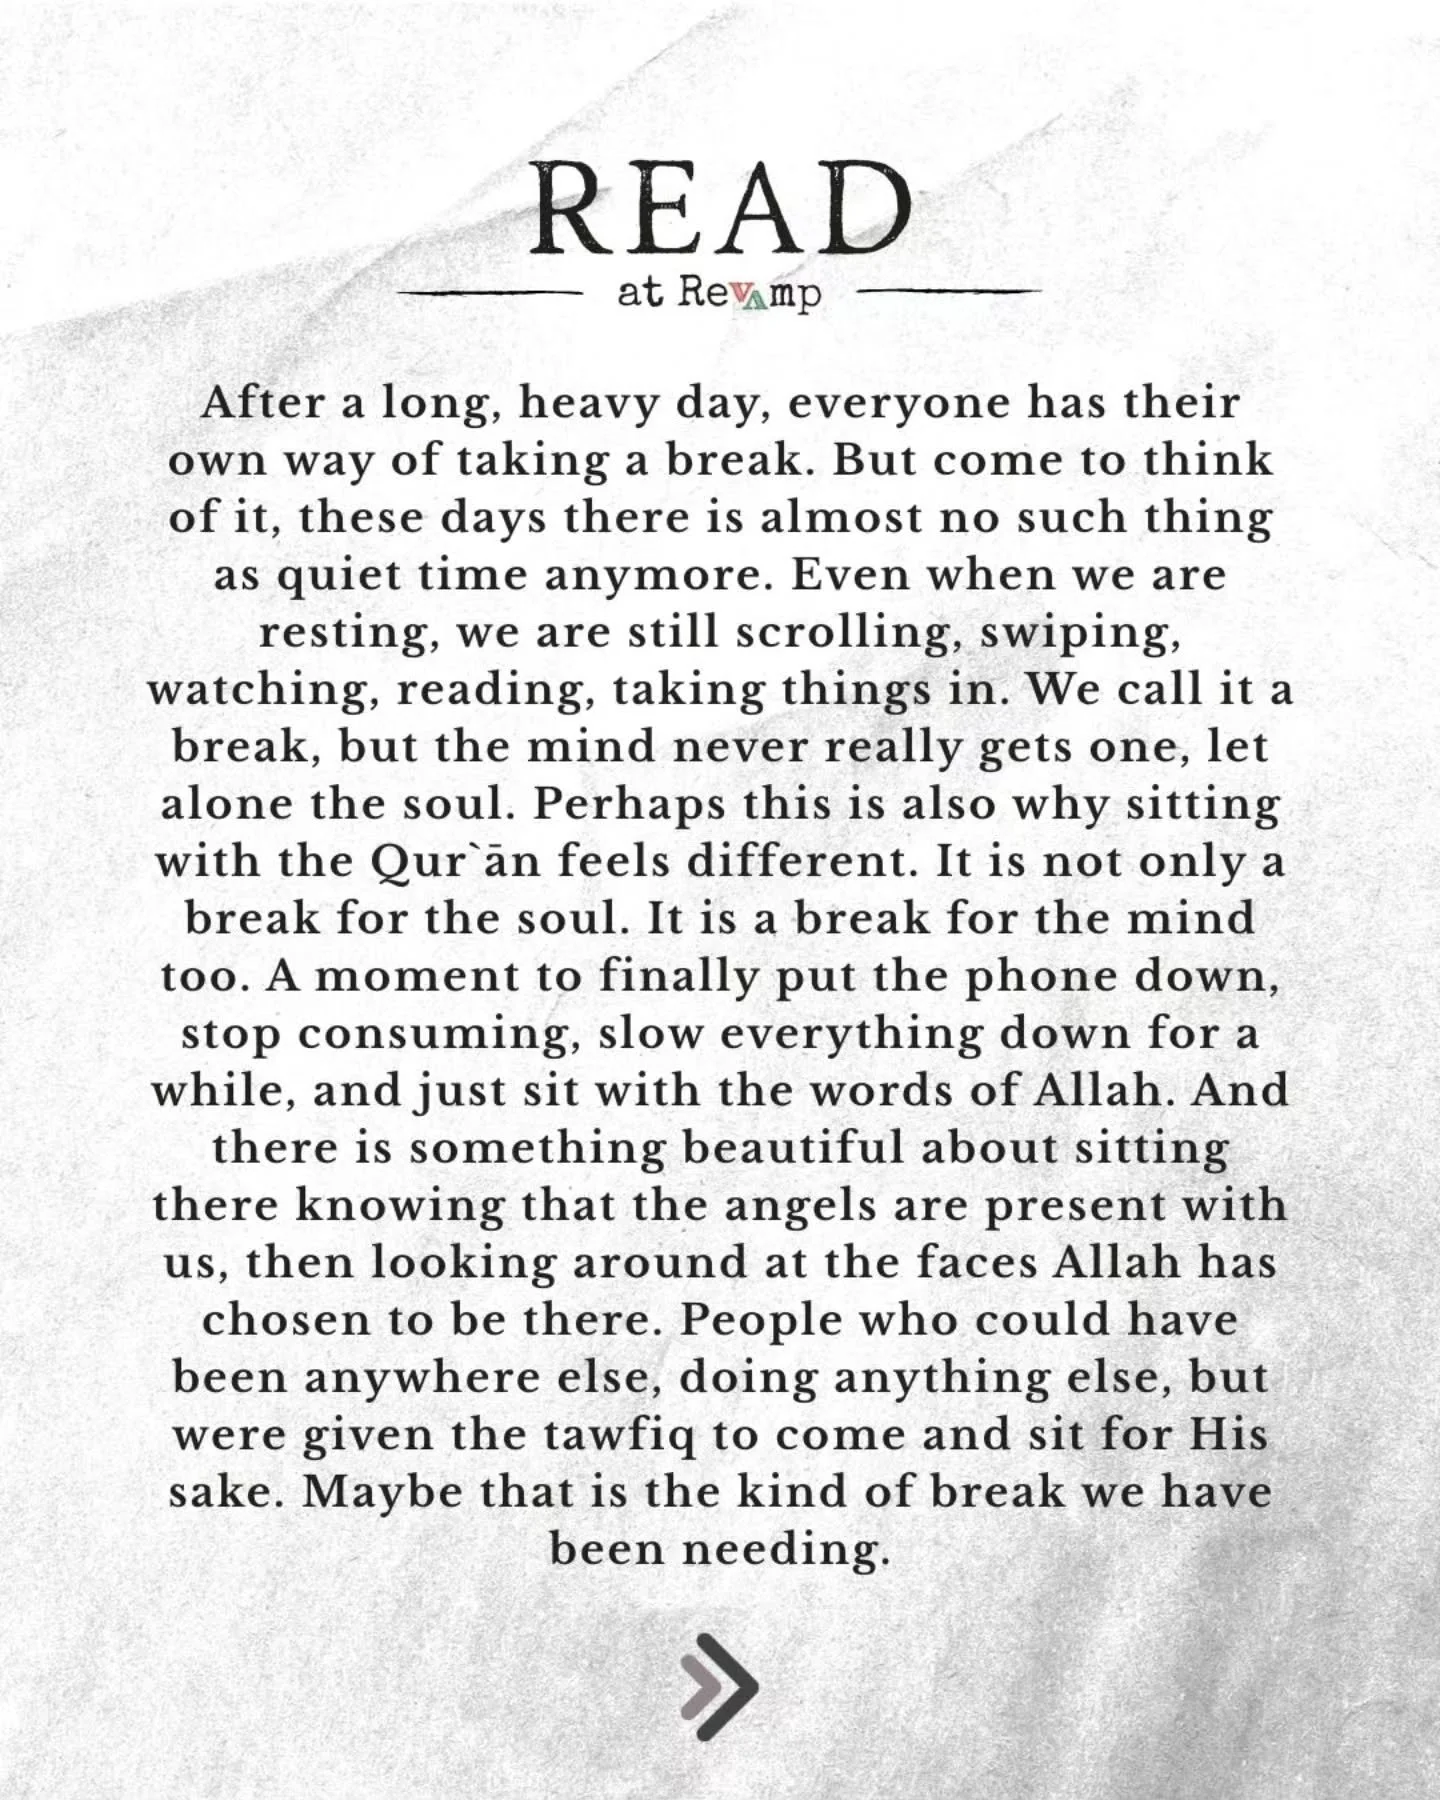 READ
at Revamp
After a long, heavy day, everyone has their
own way of taking a break. But come to think
of it, these days there is almost no such thing
as quiet time anymore. Even when we are
resting, we are still scrolling, swiping,
watching, reading, taking things in. We call it a
break, but the mind never really gets one, let
alone the soul. Perhaps this is also why sitting
with the Qur`ān feels different. It is not only a
break for the soul. It is a break for the mind
too. A moment to finally put the phone down,
stop consuming, slow everything down for a
while, and just sit with the words of Allah. And
there is something beautiful about sitting
there knowing that the angels are present with
us, then looking around at the faces Allah has
chosen to be there. People who could have
been anywhere else, doing anything else, but
were given the tawfiq to come and sit for His
sake. Maybe that is the kind of break we have
been needing.